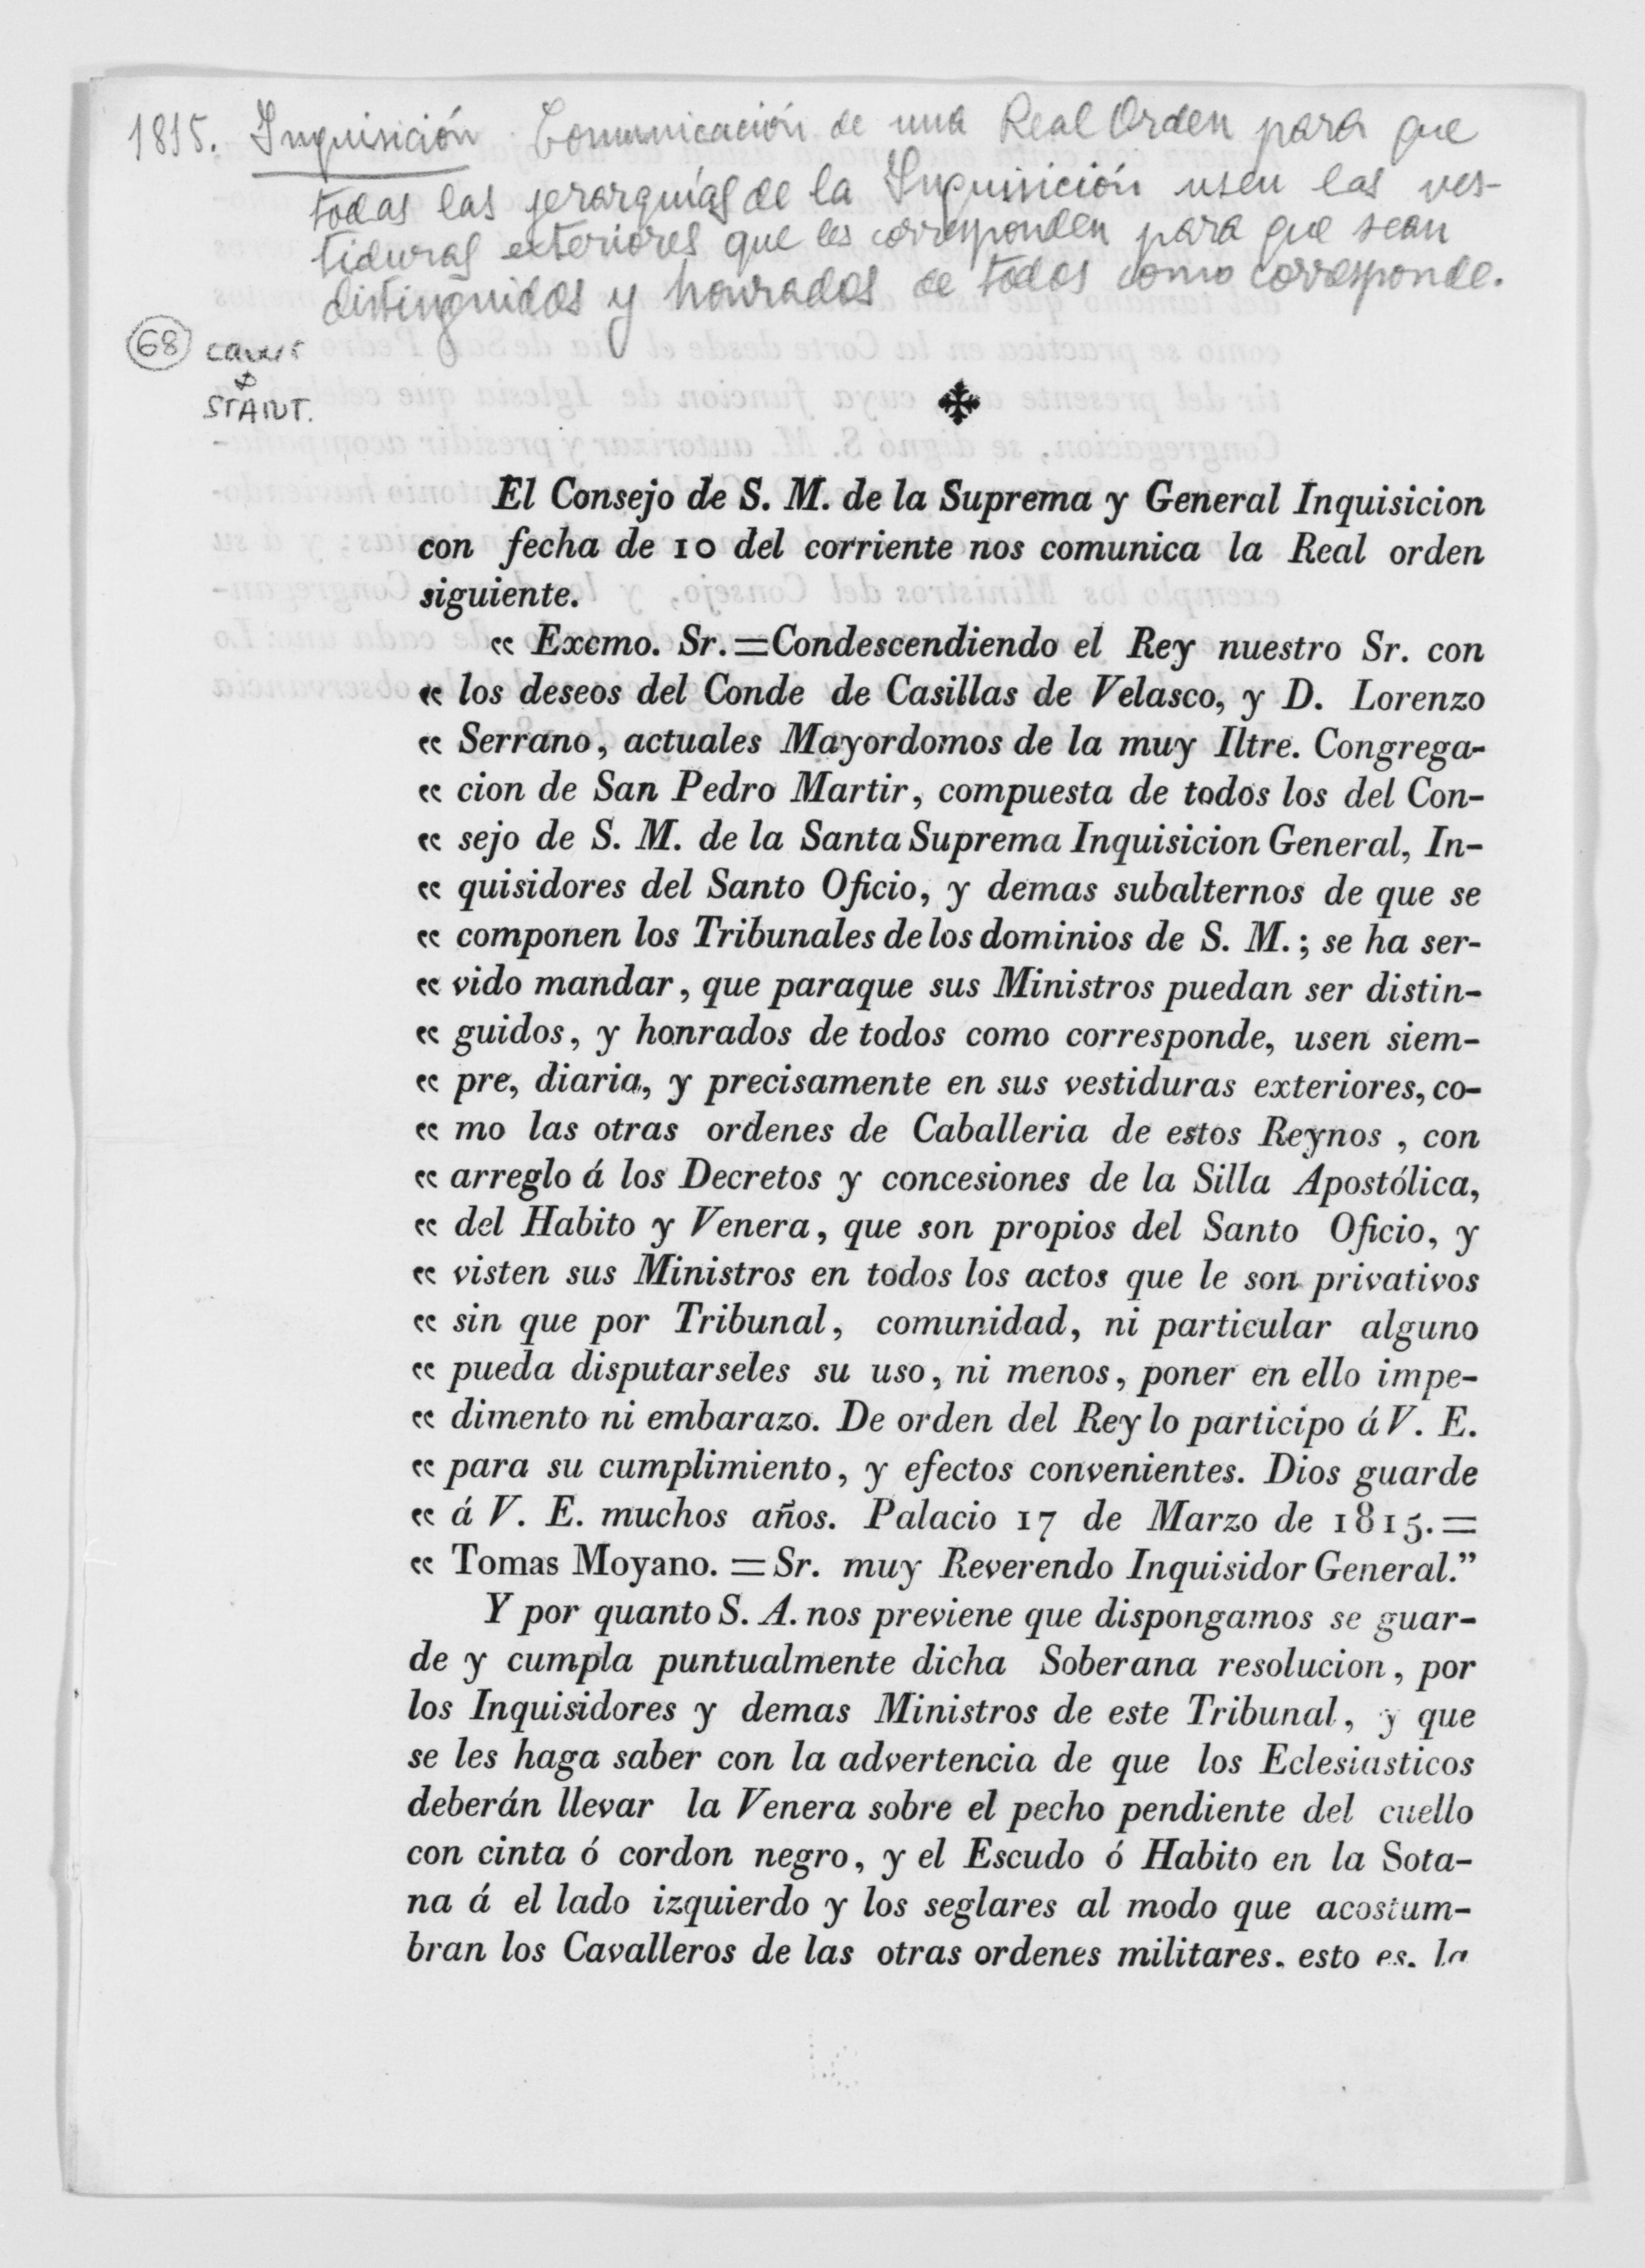 1815. Inquisición. Comunicación de una Real Orden para que
todas las jerarquías de la Inquisición usen las ves-
tiduras exteriores que les corresponden para que sean
distinguidos y honrados de todos como corresponde.
68
STANT.
El Consejo de S. M. de la Suprema y General Inquisicion
con fecha de 10 del corriente nos comunica la Real orden
siguiente.
« Excmo. Sr.=Condescendiendo el Rey nuestro Sr. con
« los deseos del Conde de Casillas de Velasco, y D. Lorenzo
« Serrano, actuales Mayordomos de la muy Iltre. Congrega-
« cion de San Pedro Martir, compuesta de todos los del Con-
« sejo de S. M. de la Santa Suprema Inquisicion General, In-
« quisidores del Santo Oficio, y demas subalternos de que se
« componen los Tribunales de los dominios de S. M.; se ha ser-
« vido mandar, que paraque sus Ministros puedan ser distin-
« guidos, y honrados de todos como corresponde, usen siem-
« pre, diaria, y precisamente en sus vestiduras exteriores, co-
« mo las otras ordenes de Caballeria de estos Reynos, con
« arreglo á los Decretos y concesiones de la Silla Apostólica,
« del Habito y Venera, que son propios del Santo Oficio, y
« visten sus Ministros en todos los actos que le son privativos
« sin que por Tribunal, comunidad, ni particular alguno
« pueda disputarseles su uso, ni menos, poner en ello impe-
« dimento ni embarazo. De orden del Rey lo participo á V. E.
« para su cumplimiento, y efectos convenientes. Dios guarde
« á V. E. muchos años. Palacio 17 de Marzo de 1815.=
« Tomas Moyano.=Sr. muy Reverendo Inquisidor General.”
Y por quanto S. A. nos previene que dispongamos se guar-
de y cumpla puntualmente dicha Soberana resolucion, por
los Inquisidores y demas Ministros de este Tribunal, y que
se les haga saber con la advertencia de que los Eclesiasticos
deberán llevar la Venera sobre el pecho pendiente del cuello
con cinta ó cordon negro, y el Escudo ó Habito en la Sota-
na á el lado izquierdo y los seglares al modo que acostum-
bran los Cavalleros de las otras ordenes militares, esto es, la